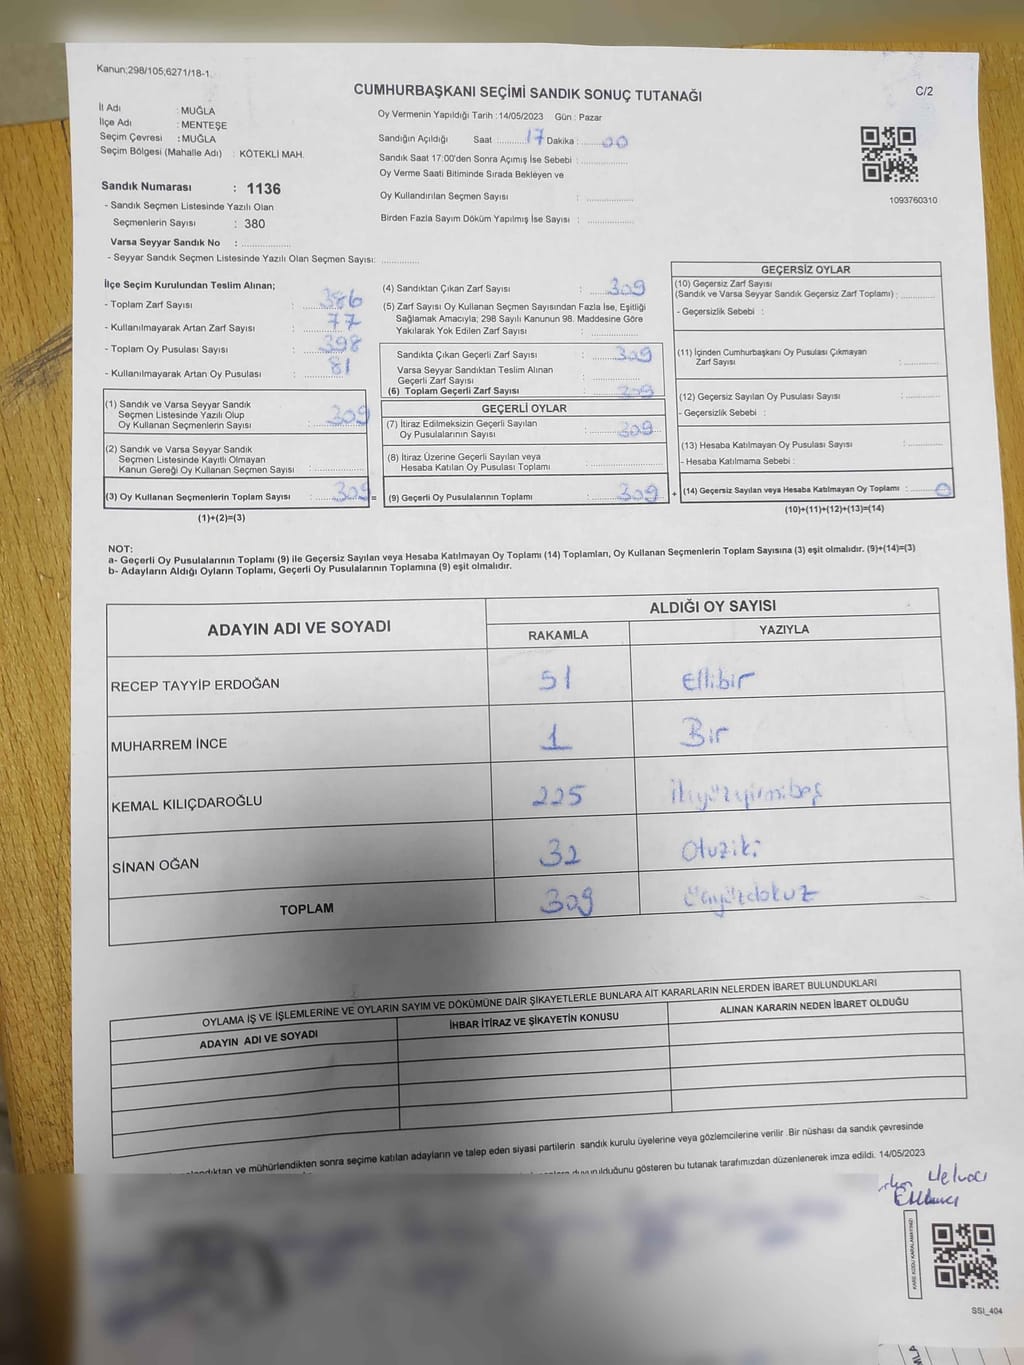 Kanun;298/105;6271/18-1.
CUMHURBAŞKANI SEÇİMİ SANDIK SONUÇ TUTANAĞI
C/2
İl Adı : MUĞLA
İlçe Adı : MENTEŞE
Seçim Çevresi : MUĞLA
Seçim Bölgesi (Mahalle Adı) : KÖTEKLİ MAH.
Sandık Numarası : 1136
- Sandık Seçmen Listesinde Yazılı Olan
Seçmenlerin Sayısı : 380
Varsa Seyyar Sandık No : ................
- Seyyar Sandık Seçmen Listesinde Yazılı Olan Seçmen Sayısı: ............
Oy Vermenin Yapıldığı Tarih : 14/05/2023 Gün : Pazar
Sandığın Açıldığı Saat :.......... 17 Dakika :...... 00
Sandık Saat 17:00'den Sonra Açımış İse Sebebi : ................
Oy Verme Saati Bitiminde Sırada Bekleyen ve
Oy Kullandırılan Seçmen Sayısı : ................
Birden Fazla Sayım Döküm Yapılmış İse Sayısı : ................
1093760310
İlçe Seçim Kurulundan Teslim Alınan;
- Toplam Zarf Sayısı : 386
- Kullanılmayarak Artan Zarf Sayısı : 77
- Toplam Oy Pusulası Sayısı : 398
- Kullanılmayarak Artan Oy Pusulası : 81
(1) Sandık ve Varsa Seyyar Sandık
Seçmen Listesinde Yazılı Olup
Oy Kullanan Seçmenlerin Sayısı : 309
(2) Sandık ve Varsa Seyyar Sandık
Seçmen Listesinde Kayıtlı Olmayan
Kanun Gereği Oy Kullanan Seçmen Sayısı : ............
(3) Oy Kullanan Seçmenlerin Toplam Sayısı : 309 =
(1)+(2)=(3)
(4) Sandıktan Çıkan Zarf Sayısı : 309
(5) Zarf Sayısı Oy Kullanan Seçmen Sayısından Fazla İse, Eşitliği
Sağlamak Amacıyla; 298 Sayılı Kanunun 98. Maddesine Göre
Yakılarak Yok Edilen Zarf Sayısı : ............
Sandıkta Çıkan Geçerli Zarf Sayısı : 309
Varsa Seyyar Sandıktan Teslim Alınan
Geçerli Zarf Sayısı : ............
(6) Toplam Geçerli Zarf Sayısı : 309
GEÇERLİ OYLAR
(7) İtiraz Edilmeksizin Geçerli Sayılan
Oy Pusulalarının Sayısı : 309
(8) İtiraz Üzerine Geçerli Sayılan veya
Hesaba Katılan Oy Pusulası Toplamı : ............
(9) Geçerli Oy Pusulalarının Toplamı : 309 +
GEÇERSİZ OYLAR
(10) Geçersiz Zarf Sayısı
(Sandık ve Varsa Seyyar Sandık Geçersiz Zarf Toplamı) : ............
- Geçersizlik Sebebi :
(11) İçinden Cumhurbaşkanı Oy Pusulası Çıkmayan
Zarf Sayısı : ............
(12) Geçersiz Sayılan Oy Pusulası Sayısı : ............
- Geçersizlik Sebebi :
(13) Hesaba Katılmayan Oy Pusulası Sayısı : ............
- Hesaba Katılmama Sebebi :
(14) Geçersiz Sayılan veya Hesaba Katılmayan Oy Toplamı : 0
(10)+(11)+(12)+(13)=(14)
NOT:
a- Geçerli Oy Pusulalarının Toplamı (9) ile Geçersiz Sayılan veya Hesaba Katılmayan Oy Toplamı (14) Toplamları, Oy Kullanan Seçmenlerin Toplam Sayısına (3) eşit olmalıdır. (9)+(14)=(3)
b- Adayların Aldığı Oyların Toplamı, Geçerli Oy Pusulalarının Toplamına (9) eşit olmalıdır.
ADAYIN ADI VE SOYADI
ALDIĞI OY SAYISI
RAKAMLA YAZIYLA
RECEP TAYYİP ERDOĞAN 51 Ellibir
MUHARREM İNCE 1 Bir
KEMAL KILIÇDAROĞLU 225 İkiyüzyirmibeş
SİNAN OĞAN 32 Otuziki
TOPLAM 309 üçyüzdokuz
OYLAMA İŞ VE İŞLEMLERİNE VE OYLARIN SAYIM VE DÖKÜMÜNE DAİR ŞİKAYETLERLE BUNLARA AİT KARARLARIN NELERDEN İBARET BULUNDUKLARI
ADAYIN ADI VE SOYADI İHBAR İTİRAZ VE ŞİKAYETİN KONUSU ALINAN KARARIN NEDEN İBARET OLDUĞU
ve mühürlendikten sonra seçime katılan adayların ve talep eden siyasi partilerin sandık kurulu üyelerine veya gözlemcilerine verilir .Bir nüshası da sandık çevresinde
duyurulduğunu gösteren bu tutanak tarafımızdan düzenlenerek imza edildi. 14/05/2023
KARE KODU KARALAMAYINIZ!
SSI_404